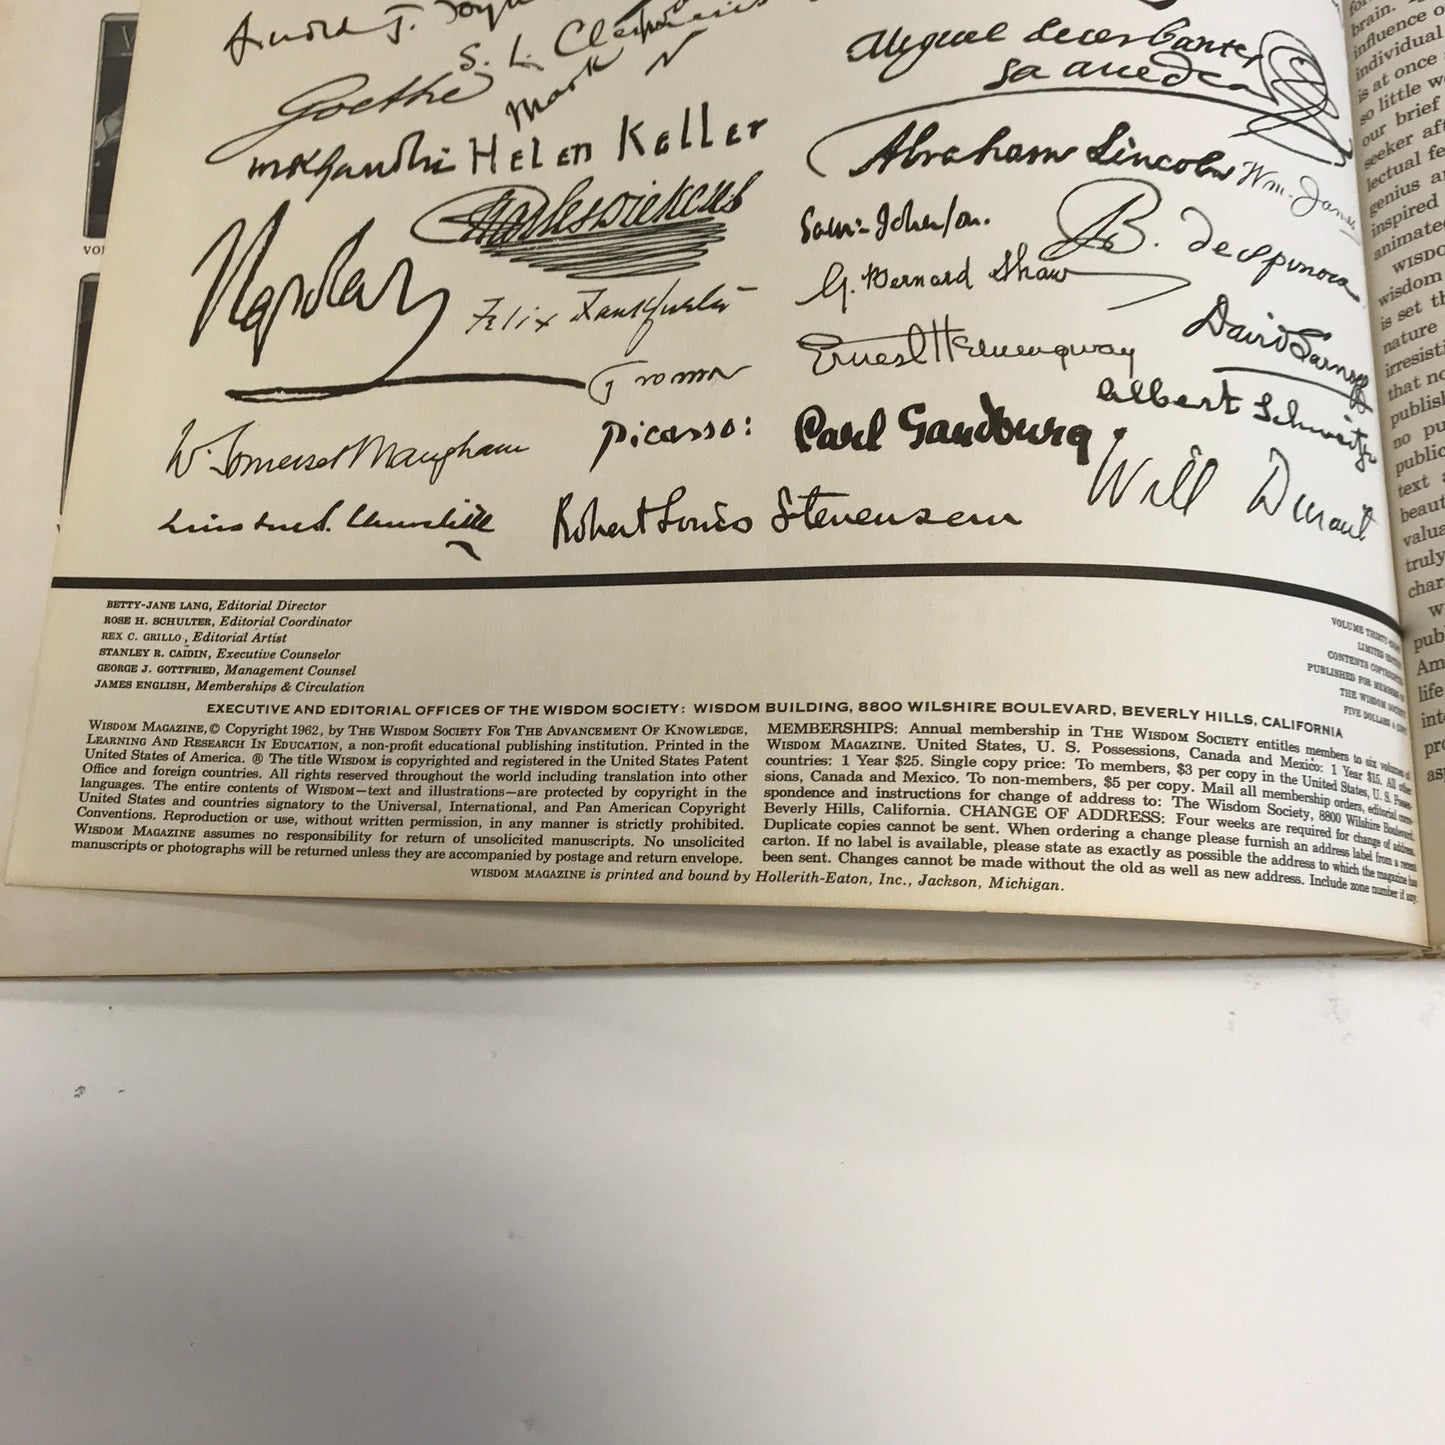 Arnold J. Toynbee
S. L. Clemens
Mark
Goethe
MKGandhi
Helen Keller
Charles Dickens
Napoleon
Felix Frankfurter
W. Somerset Maugham
Picasso:
Winston S. Churchill
Robert Louis Stevenson
Miguel de cerbantes
saavedra
Abraham Lincoln
Wm. James
Sam: Johnson.
B. despinoza
G. Bernard Shaw
David Sarnoff
Ernest Hemingway
Albert Schweitzer
Carl Sandburg
Will Durant
BETTY-JANE LANG, Editorial Director
ROSE H. SCHULTER, Editorial Coordinator
REX C. GRILLO, Editorial Artist
STANLEY R. CAIDIN, Executive Counselor
GEORGE J. GOTTFRIED, Management Counsel
JAMES ENGLISH, Memberships & Circulation
VOLUME THIRTY-EIGHT
LIMITED EDITION
CONTENTS COPYRIGHTED
PUBLISHED FOR MEMBERS OF
THE WISDOM SOCIETY
FIVE DOLLARS A COPY
EXECUTIVE AND EDITORIAL OFFICES OF THE WISDOM SOCIETY: WISDOM BUILDING, 8800 WILSHIRE BOULEVARD, BEVERLY HILLS, CALIFORNIA
WISDOM MAGAZINE, © Copyright 1962, by THE WISDOM SOCIETY FOR THE ADVANCEMENT OF KNOWLEDGE,
LEARNING AND RESEARCH IN EDUCATION, a non-profit educational publishing institution. Printed in the
United States of America. ® The title WISDOM is copyrighted and registered in the United States Patent
Office and foreign countries. All rights reserved throughout the world including translation into other
languages. The entire contents of WISDOM—text and illustrations—are protected by copyright in the
United States and countries signatory to the Universal, International, and Pan American Copyright
Conventions. Reproduction or use, without written permission, in any manner is strictly prohibited.
WISDOM MAGAZINE assumes no responsibility for return of unsolicited manuscripts. No unsolicited
manuscripts or photographs will be returned unless they are accompanied by postage and return envelope.
MEMBERSHIPS: Annual membership in THE WISDOM SOCIETY entitles members to six volumes of
WISDOM MAGAZINE. United States, U. S. Possessions, Canada and Mexico: 1 Year $15. All other
countries: 1 Year $25. Single copy price: To members, $3 per copy in the United States, U. S. Posses-
sions, Canada and Mexico. To non-members, $5 per copy. Mail all membership orders, editorial corre-
spondence and instructions for change of address to: The Wisdom Society, 8800 Wilshire Boulevard,
Beverly Hills, California. CHANGE OF ADDRESS: Four weeks are required for change of address.
Duplicate copies cannot be sent. When ordering a change please furnish an address label from a recent
carton. If no label is available, please state as exactly as possible the address to which the magazine has
been sent. Changes cannot be made without the old as well as new address. Include zone number if any.
WISDOM MAGAZINE is printed and bound by Hollerith-Eaton, Inc., Jackson, Michigan.
brain.
influence o
individual
is at once
so little w
our brief
seeker aft
lectual fe
genius a
inspired
animate
WISDO
wisdom
is set th
nature
irresisti
that no
publish
no pu
public
text
beaut
valua
truly
char
w
pub
Am
life
inte
pro
as